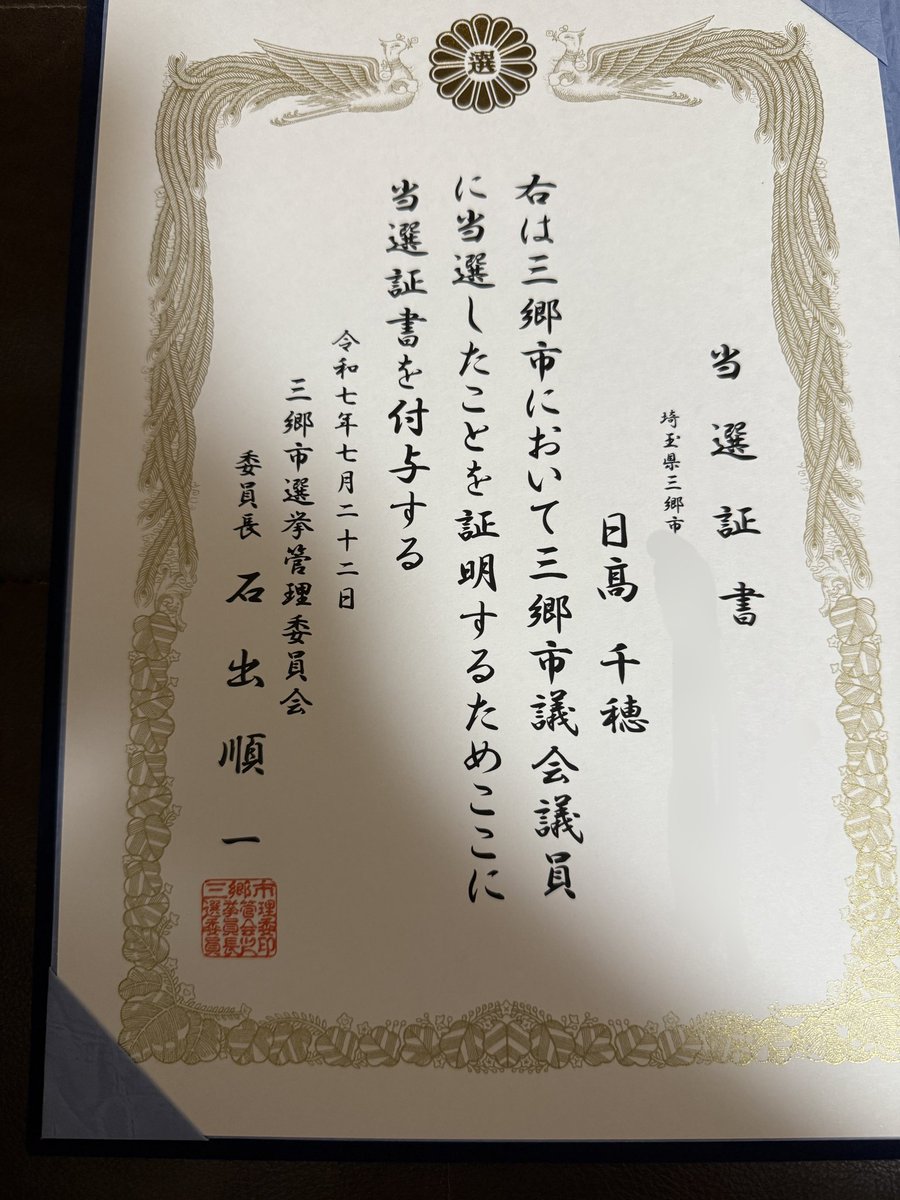 選
当選証書
埼玉県三郷市
日高 千穂
右は三郷市において三郷市議会議員
に当選したことを証明するためここに
当選証書を付与する
令和七年七月二十二日
三郷市選挙管理委員会
委員長 石出順一
三郷市選挙管理委員会委員長之印